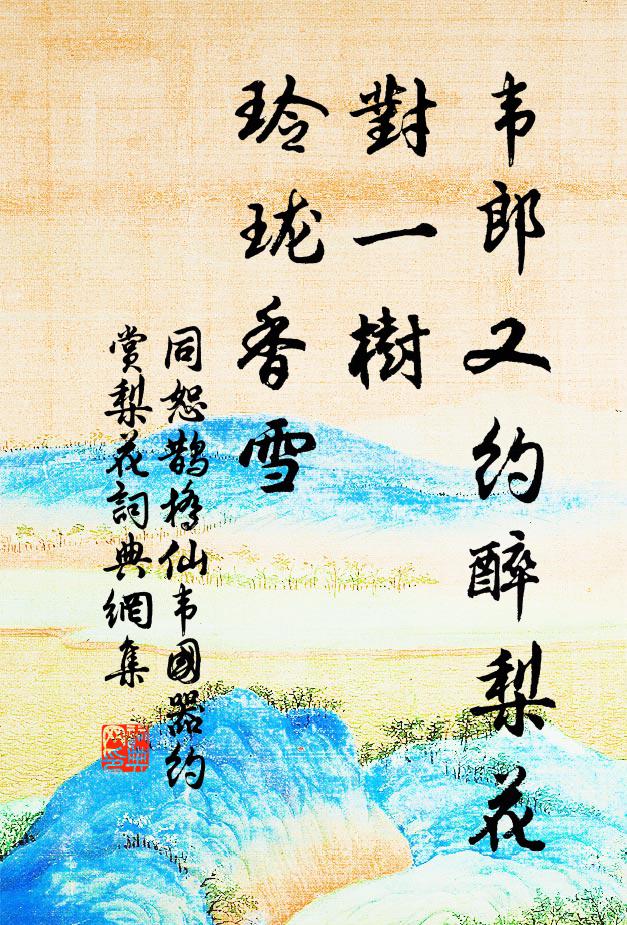 韦郎又约醉梨花
對一樹
玲珑香雪
同恕鹊橋仙韦國器约
赏梨花詞典網集